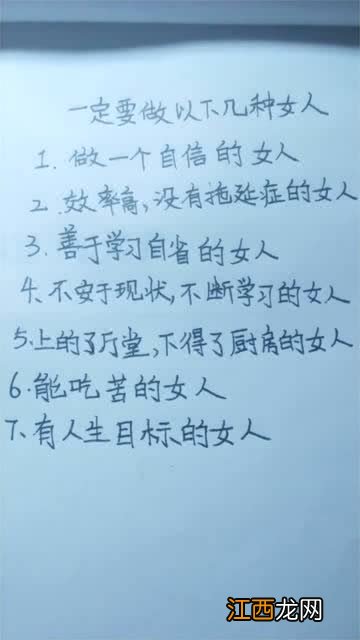 一定要做以下几种女人
1.做一个自信的女人
2.效率高,没有拖延症的女人
3.善于学习自省的女人
4、不安于现状,不断学习的女人
5、上的了厅堂,下得了厨房的女人
6.能吃苦的女人
7、有人生目标的女人
江西龙网